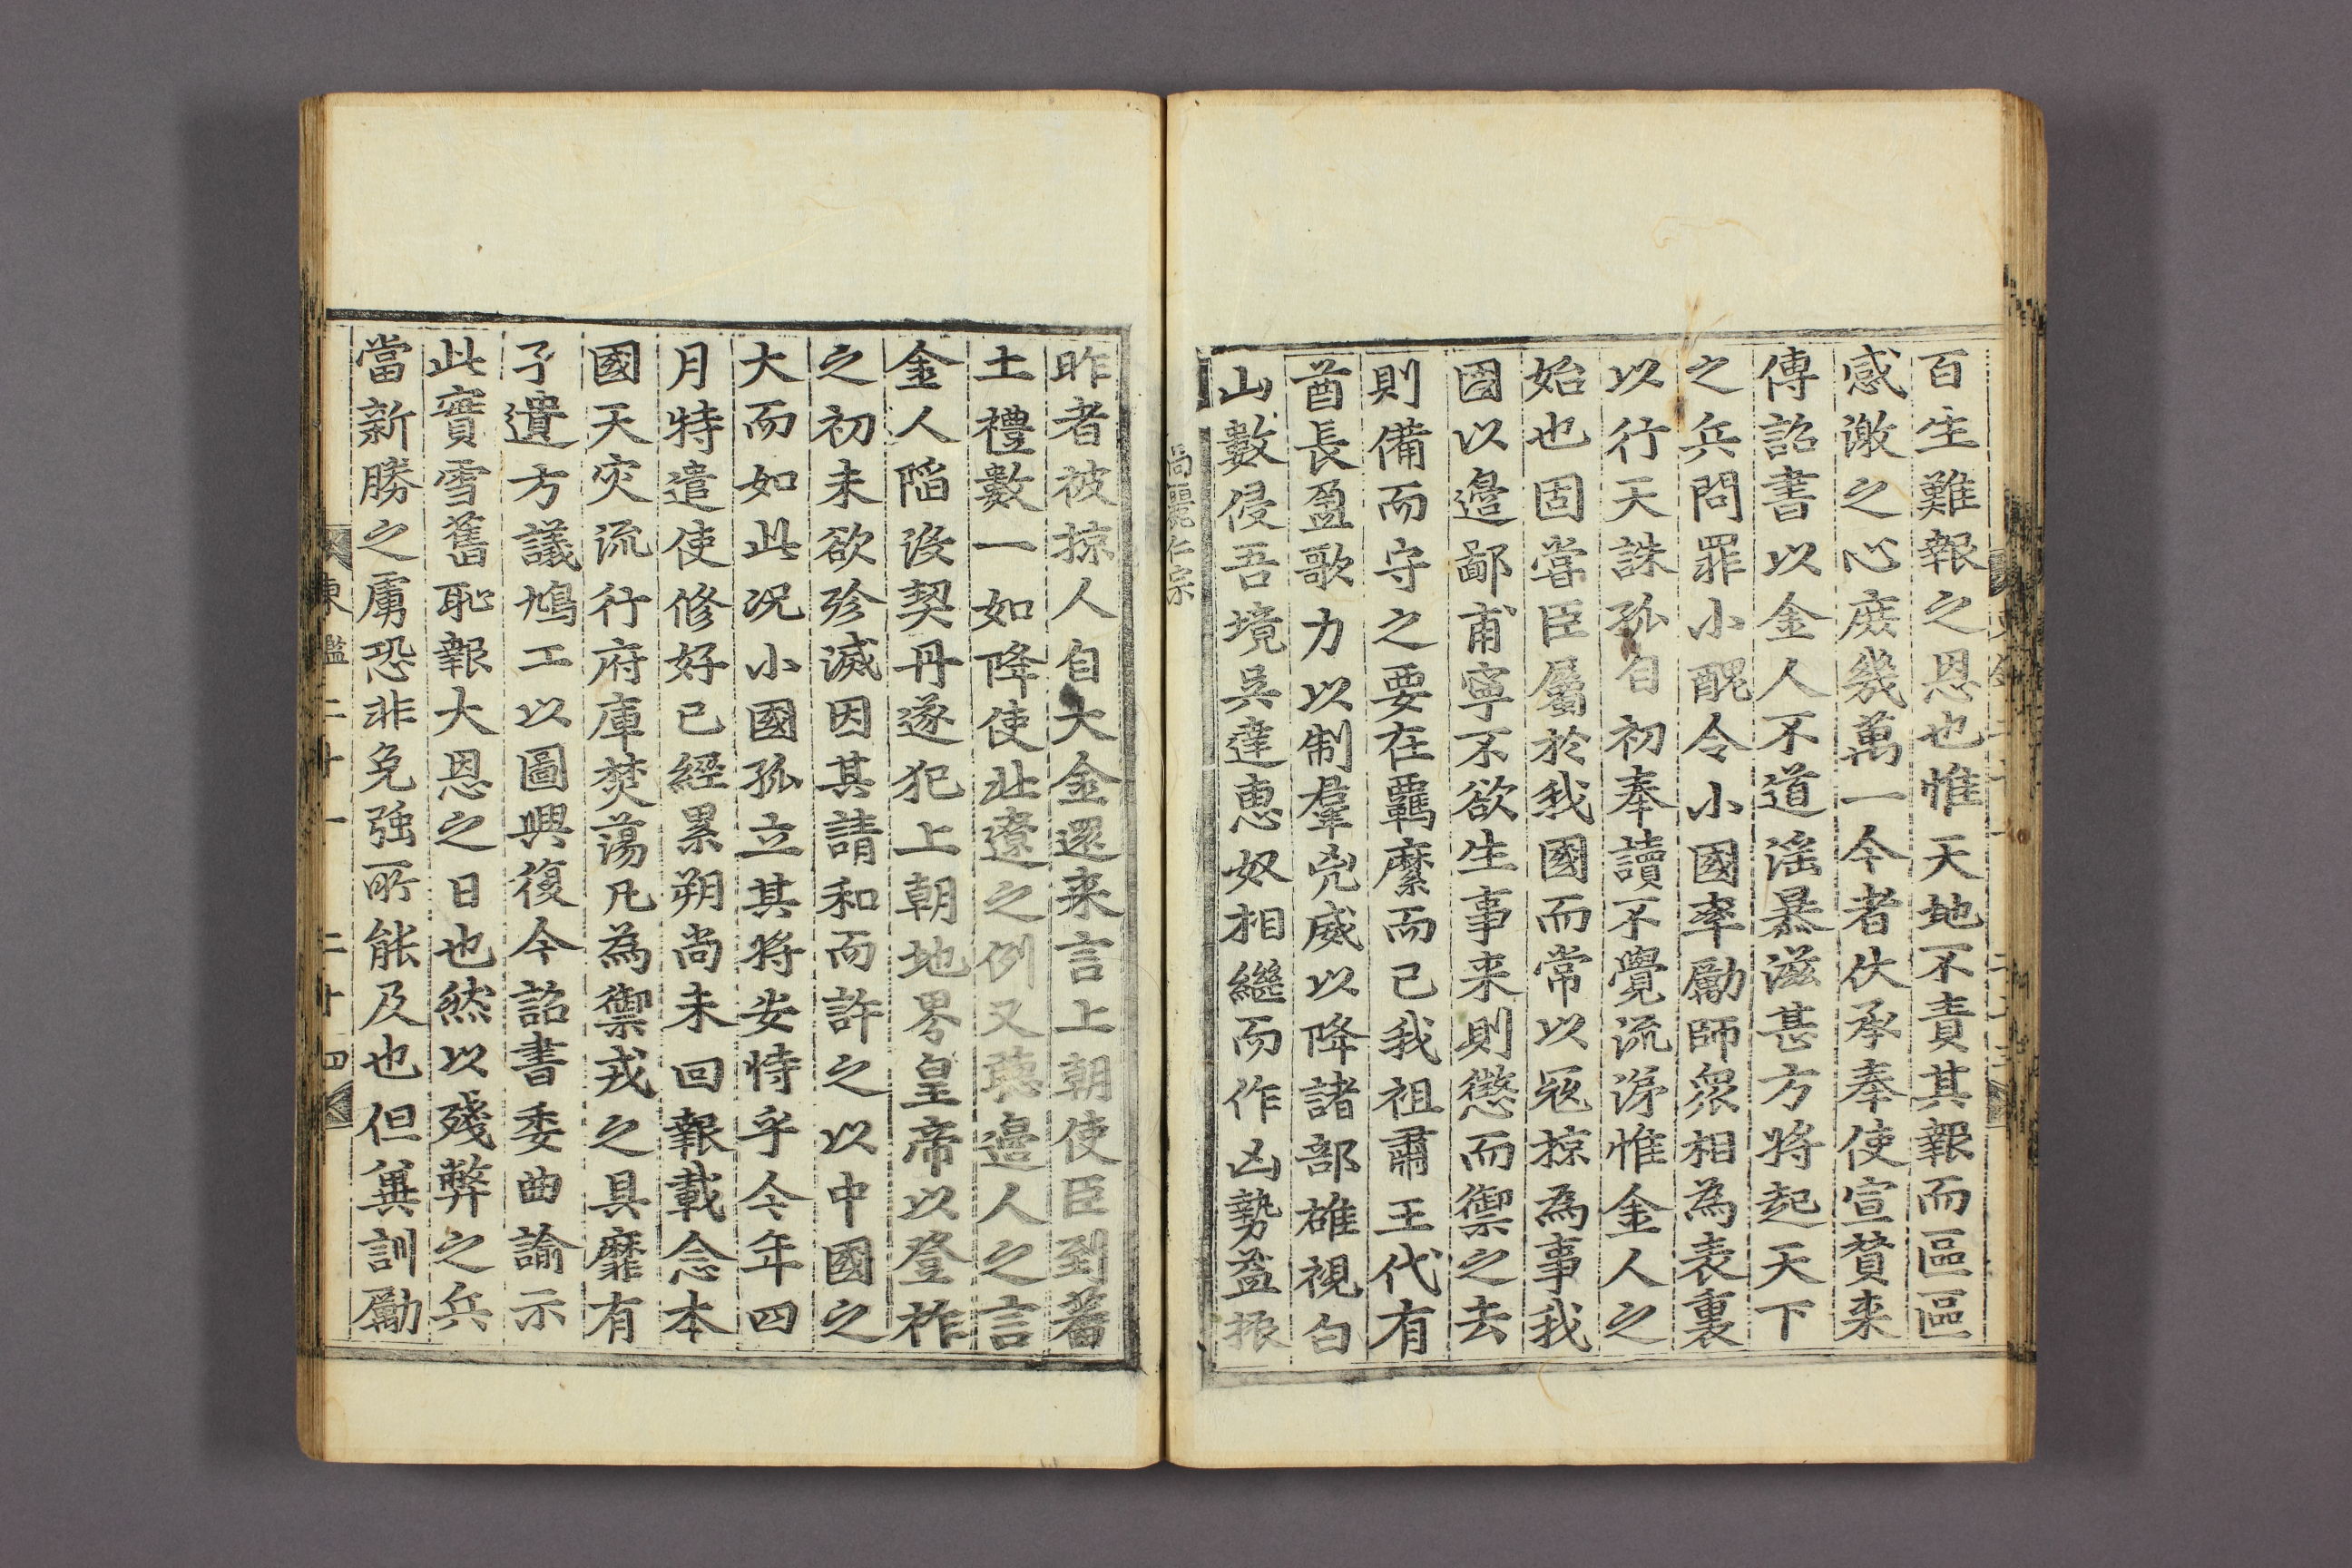 百生難報之恩也惟天地不責其報而區區
感激之心庶幾萬一今者伏承奉使宣賛来
傳詔書以金人不道滛暴滋甚方將起天下
之兵問罪小醜令小國率勵師衆相為表裏
以行天誅孤自初奉讀不覺流涕惟金人之
始也固嘗臣屬於我國而常以冦掠為事我
國以邉鄙甫寧不欲生事来則懲而禦之去
則備而守之要在羈縻而已我祖肅王代有
酋長盈歌力以制羣兇威以降諸部雄視白
山數侵吾境吴達恵奴相繼而作凶勢益振
高麗仁宗
昨者被掠人自大金還来言上朝使臣到蕃
土禮數一如降使北遼之例又聴邉人之言
金人陷沒契丹遂犯上朝地界皇帝以登祚
之初未欲殄滅因其請和而許之以中國之
大而如此况小國孤立其將安恃乎今年四
月特遣使修好已經累朔尚未回報載念本
國天灾流行府庫焚蕩凡為禦戎之具靡有
孑遺方議鳩工以圖興復今詔書委曲諭示
此實雪舊恥報大恩之日也然以殘弊之兵
當新勝之虜恐非免强所能及也但兾訓勵
東鑑二十一 二十四